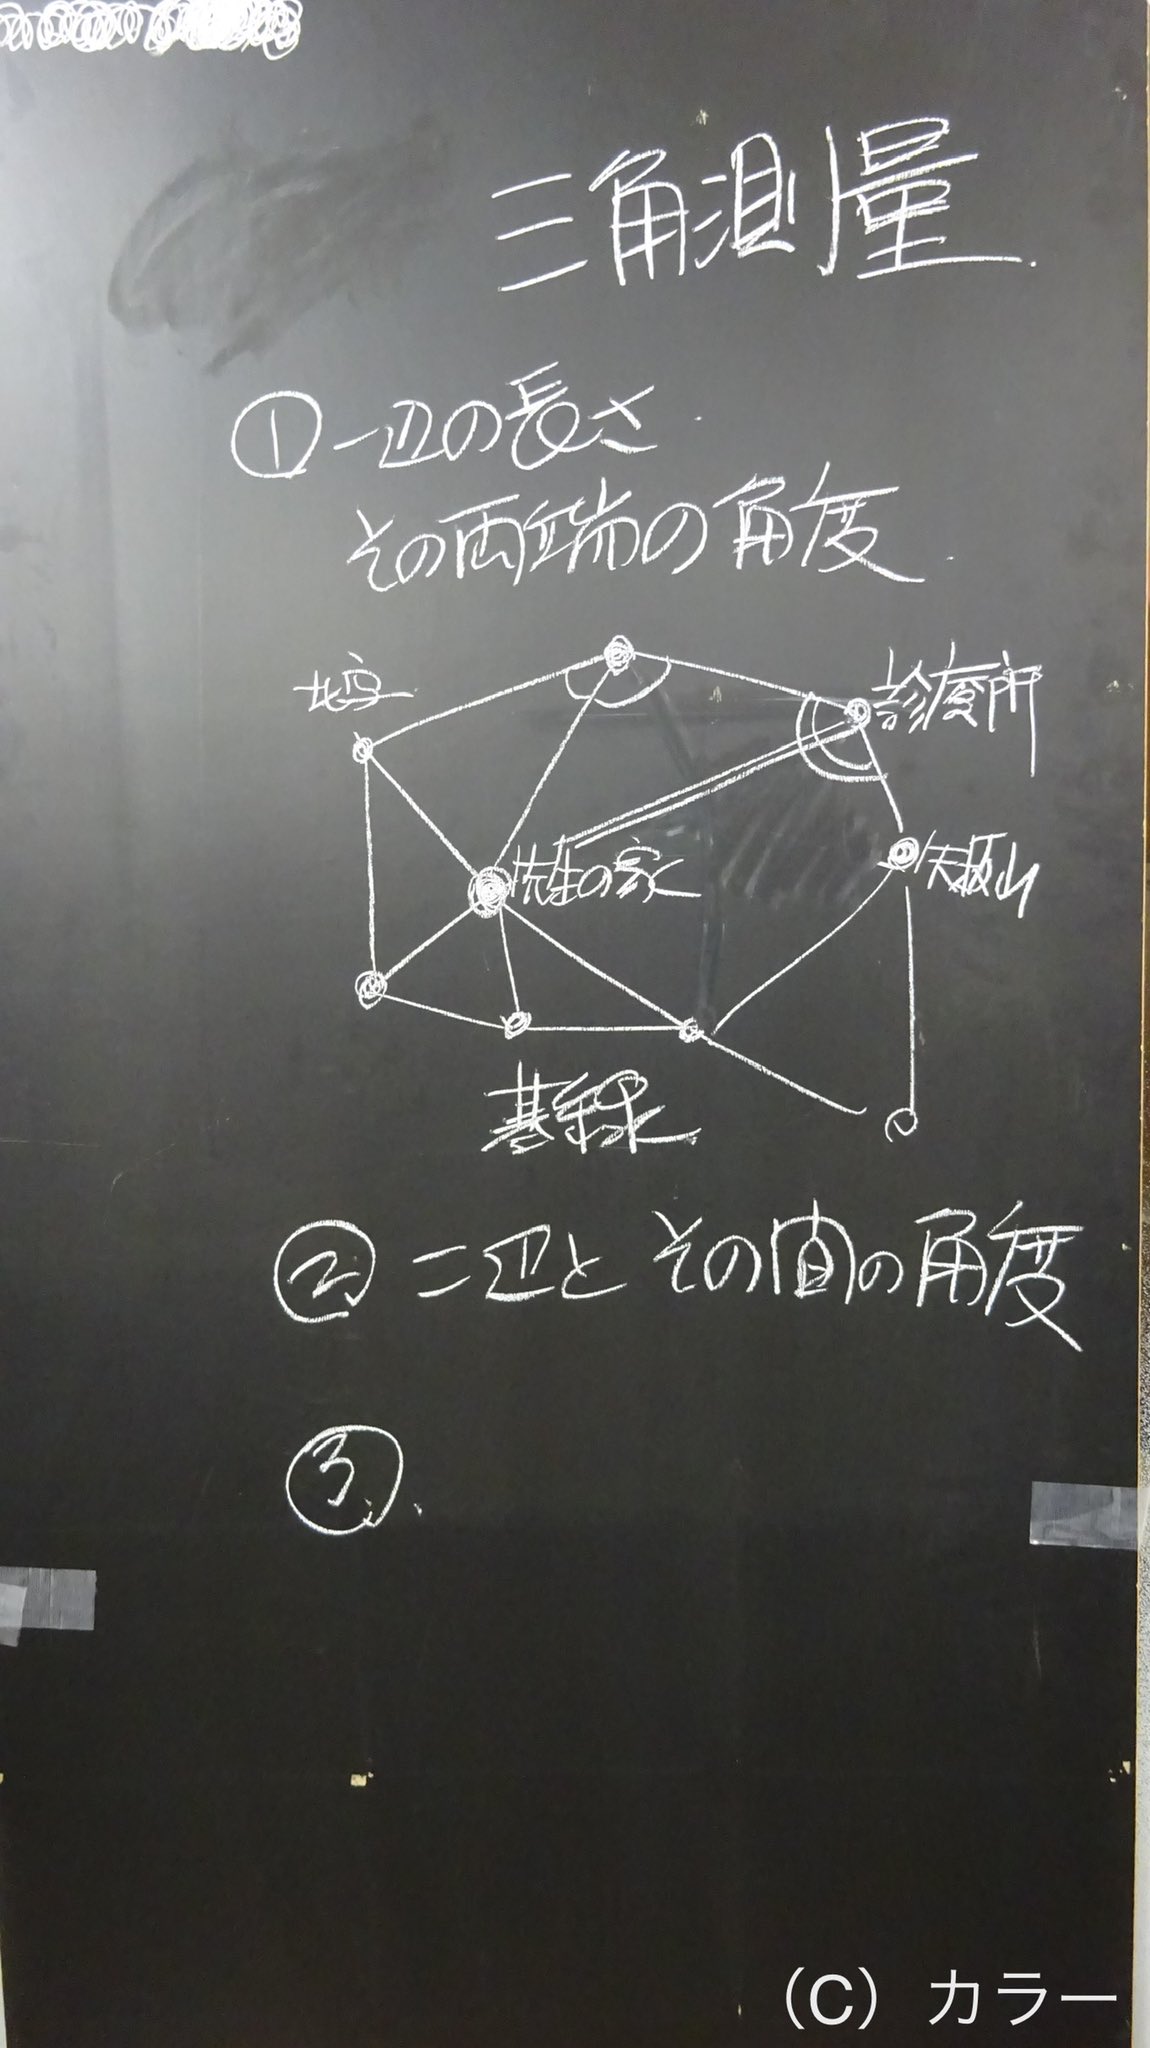 三角測量
①一辺の長さ
その両端の角度
診療所
先生の家
基線
②二辺とその間の角度
③
(C) カラー